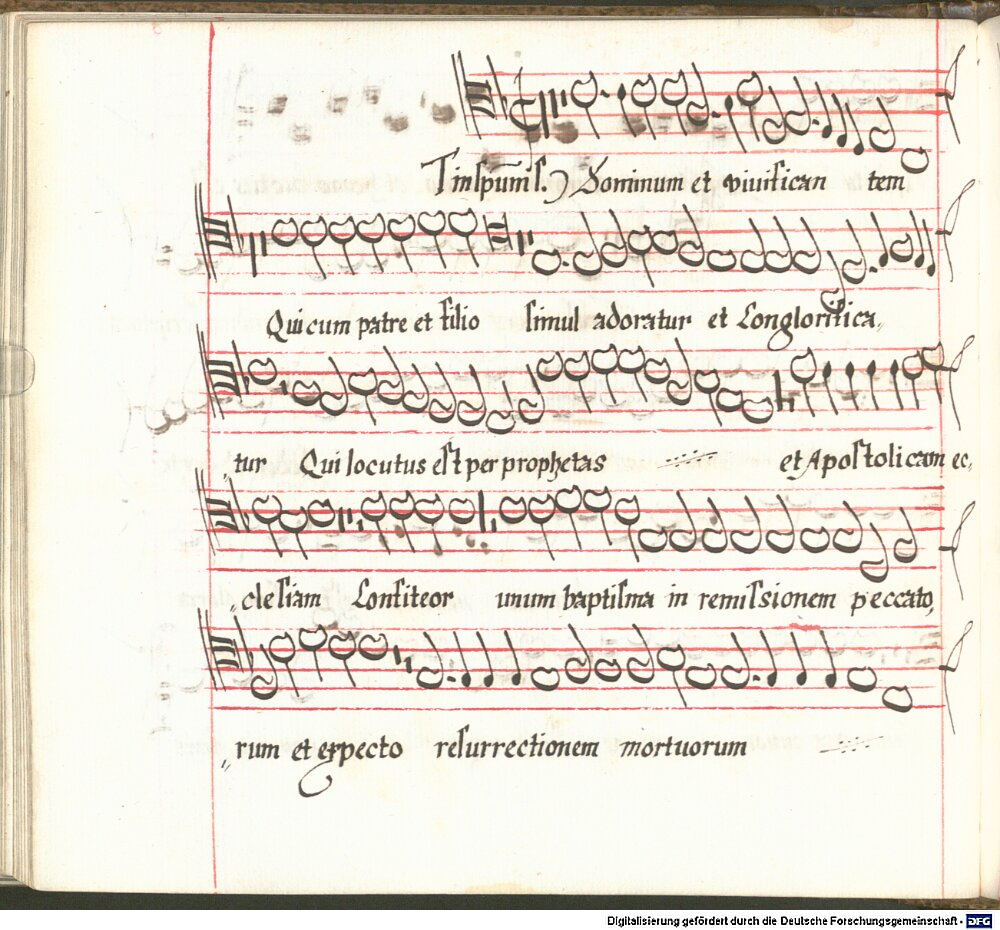 Et in spum̄ s. Dominum et viuifican tem
Qui cum patre et filio simul adoratur et Conglorifica,,
tur Qui locutus est per prophetas et Apostolicam ec,,
,,clesiam Confiteor unum baptisma in remissionem peccato,,
,,rum et expecto resurrectionem mortuorum
Digitalisierung gefördert durch die Deutsche Forschungsgemeinschaft - DFG